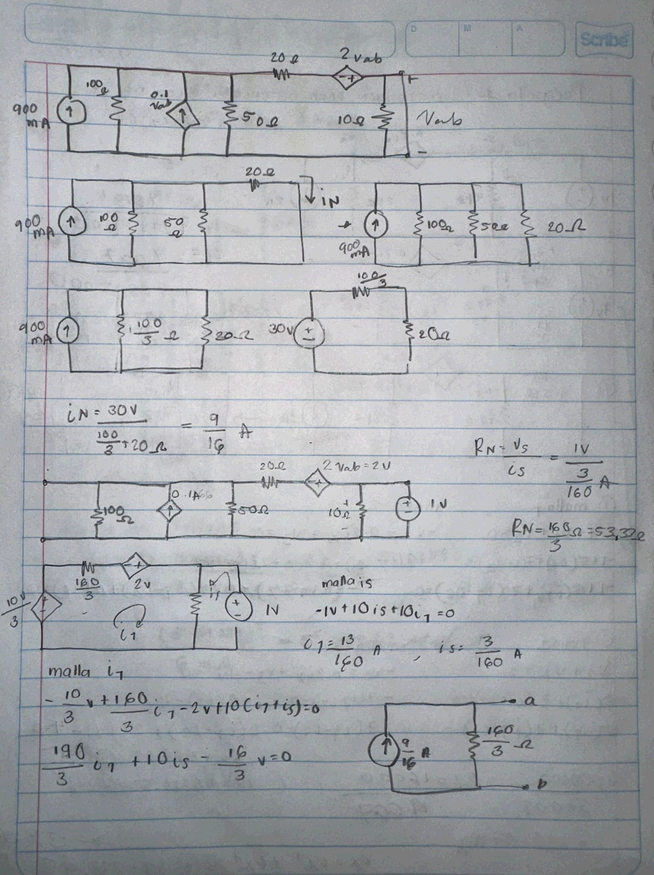 D M A Scribe
20Ω 2vab
900 mA 100Ω 0.1 vab 50Ω 10Ω + Vab -
20Ω iN
900 mA 100Ω 50Ω → 900 mA 100Ω 50Ω 20Ω
900 mA 100/3 Ω 20Ω 30V + - 100/3 20Ω
iN = 30V / (100/3 + 20Ω) = 9/16 A
RN = Vs/is = 1V / (3/160 A)
RN = 160/3 Ω = 53,33Ω
20Ω 2Vab=2V
100Ω 0.1A 50Ω 10Ω + - 1V
10V/3 160/3 2V i1 is + - 1V
malla is
-1V+10is+10i1=0
i1 = 13/160 A , is = 3/160 A
malla i1
-10/3 V + 160/3 i1 - 2V + 10(i1+is)=0
190/3 i1 + 10is - 16/3 V=0
9/16 A 160/3 Ω a b